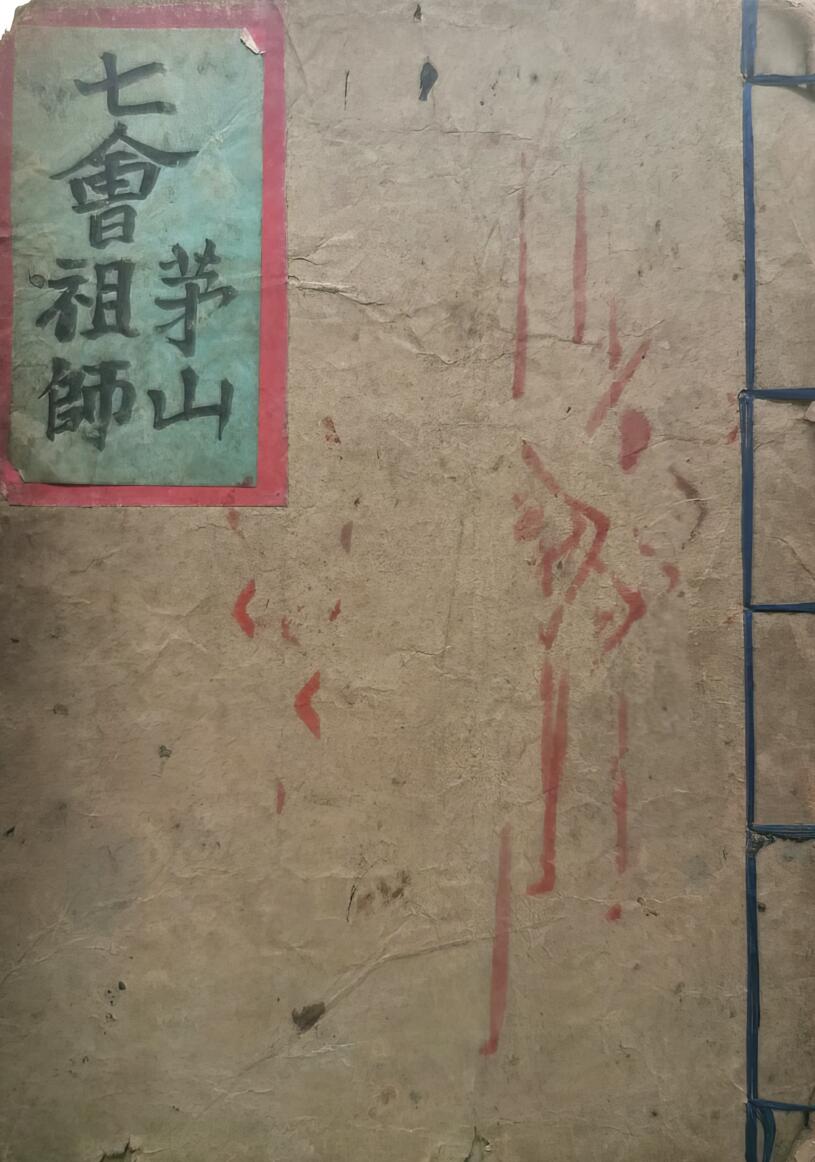 茅山
七會祖師